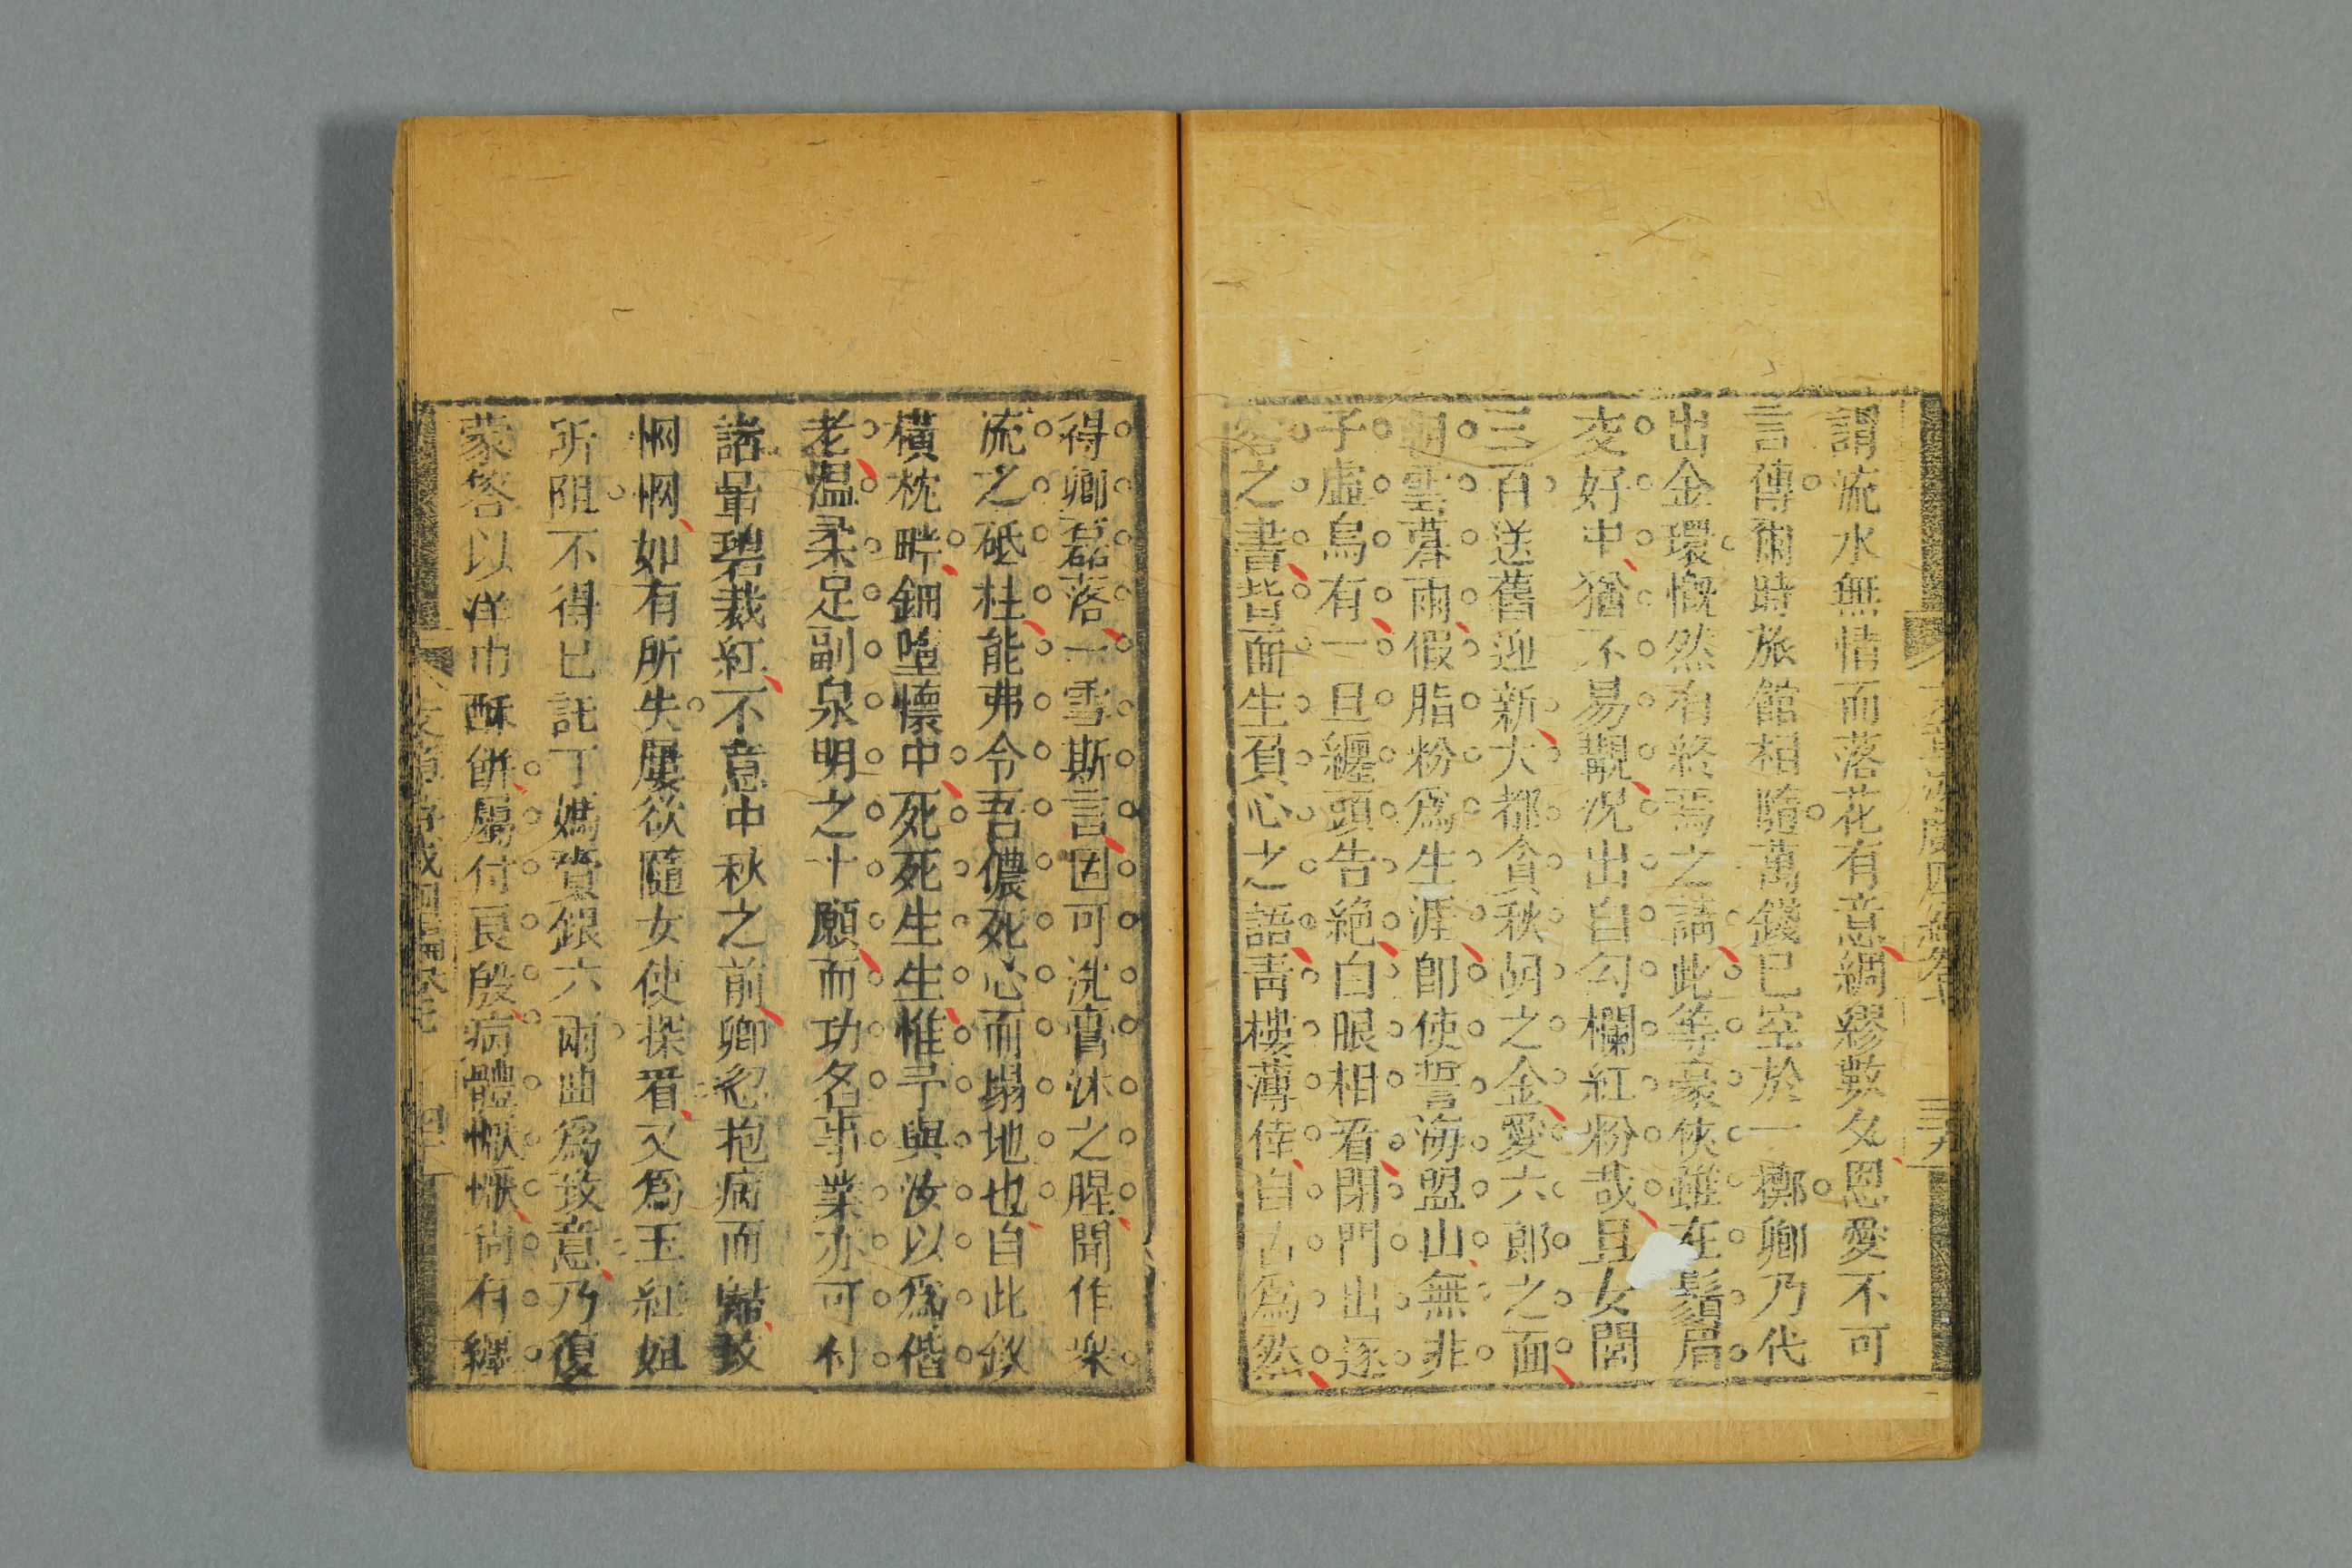 謂流水無情而落花有意綢繆數夕恩愛不可
言傳爾時旅館相隨萬錢已空於一擲卿乃代
出金環慨然有終焉之講此等豪俠雖在鬚眉
交好中猶不易覯況出自勾欄紅粉哉且女閭
三百送舊迎新大都貪秋胡之金愛六郎之面
朝雲暮雨假脂粉爲生涯卽使誓海盟山無非
子虛烏有一旦纏頭告絕白眼相看閉門出逐
客之書皆面生負心之語靑樓薄倖自古爲然
得卿磊落一雪斯言固可洗膏沐之腥聞作柴
流之砥柱能弗令吾儂死心而塌地也自此敘
橫枕畔鈿墮懷中死死生生惟予與汝以爲偕
老溫柔足副泉明之十願而功名事業亦可付
諸暈碧裁紅不意中秋之前卿忽抱病而歸致
惘惘如有所失屢欲隨女使探看又爲玉紅姐
所阻不得已託丁媽賫銀六兩曲爲致意乃復
蒙答以洋巾酥餅屬付良殷病體懨懨尚有纏